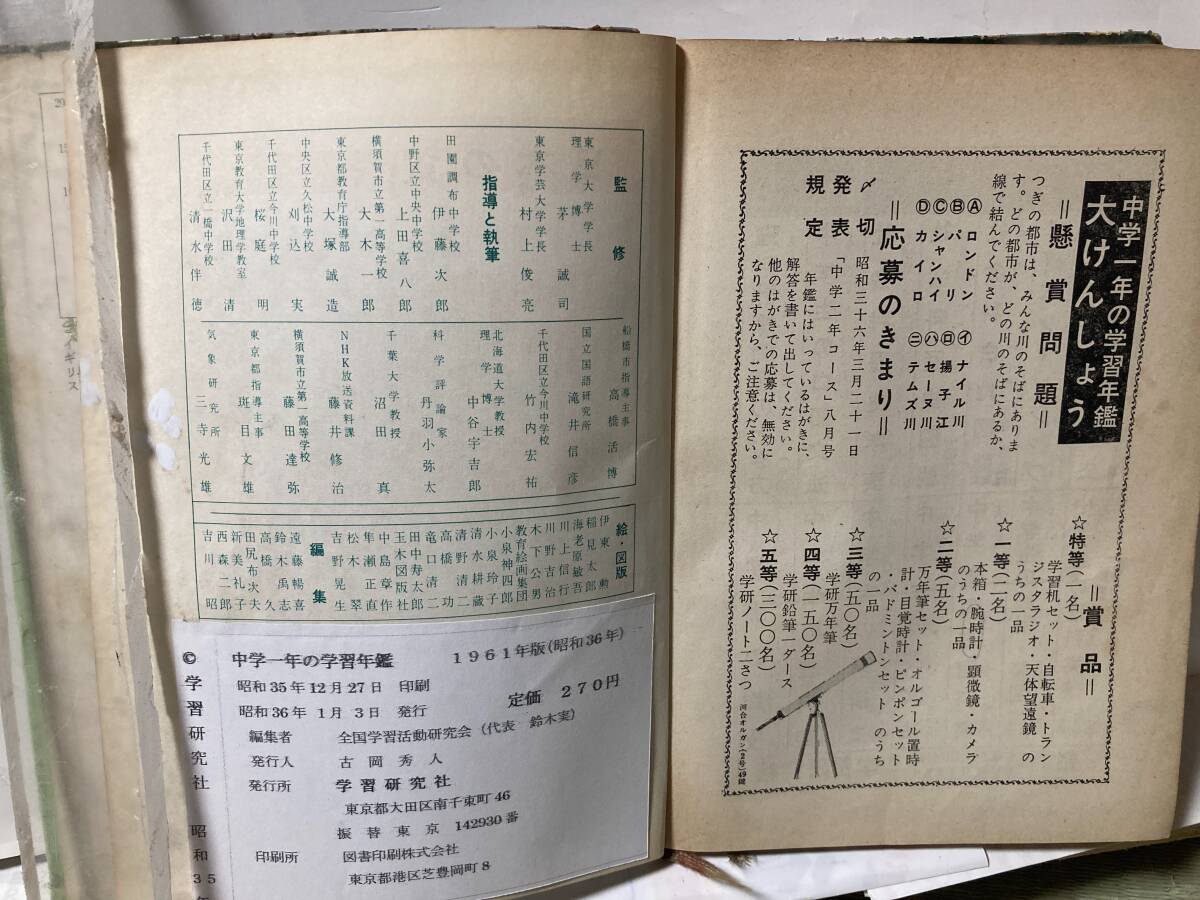 中学一年の学習年鑑
大けんしょう
＝懸賞問題＝
つぎの都市は、みんな川のそばにありま
す。どの都市が、どの川のそばにあるか、
線で結んでください。
Ⓐ ロンドン ㋑ ナイル川
Ⓑ パリ ㋺ 揚子江
Ⓒ シャンハイ ㋩ セーヌ川
Ⓓ カイロ ㊁ テムズ川
＝応募のきまり＝
〆切 昭和三十六年三月二十一日
発表 「中学二年コース」八月号
規定 年鑑にはいっているはがきに、
解答を書いて出してください。
他のはがきでの応募は、無効に
なりますから、ご注意ください。
＝賞品＝
☆特等(一名)
学習机セット・自転車・トラン
ジスタラジオ・天体望遠鏡 の
うちの一品
☆一等(二名)
本箱・腕時計・顕微鏡・カメラ
のうちの一品
☆二等(五名)
万年筆セット・オルゴール置時
計・目覚時計・ピンポンセット
・バドミントンセット のうち
の一品
☆三等(五〇名)
学研万年筆
☆四等(一五〇名)
学研鉛筆一ダース
☆五等(三〇〇名)
学研ノート二さつ
河合オルガン(2号)49鍵
監修
東京大学学長
理学博士 茅誠司
東京学芸大学学長 村上俊亮
指導と執筆
田園調布中学校 伊藤次郎
中野区立中央中学校 上田喜八郎
横須賀市立第一高等学校 大木一郎
東京都教育庁指導部 大塚誠造
中央区立久松中学校 刈込実
千代田区立今川中学校 桜庭明
東京教育大学地理学教室 沢田清
千代田区立一橋中学校 清水伴徳
船橋市指導主事 高橋活博
国立国語研究所 滝井信彦
千代田区立今川中学校 竹内宏祐
北海道大学教授
理学博士 中谷宇吉郎
科学評論家 丹羽小弥太
千葉大学教授 沼田真
NHK放送資料課 藤井修治
横須賀市立第一高等学校 藤田達弥
東京都指導主事 斑目文雄
気象研究所 三寺光雄
絵・図版
伊東勲
稲見太郎
海老原敏吾
川上信行
川野吉治
木下公男
教育絵画集団
小泉神四郎
小泉玲子
清水耕蔵
清野清二
高橋功
竜口清二
田中寿太郎
玉木図版社
中島章作
隼瀬正直
松木翠
吉野晃生
編集
遠藤暢喜
鈴木禹志
高橋久
田尻布次夫
新美礼子
西森二郎
吉川昭
© 学習研究社 昭和35年
中学一年の学習年鑑 1961年版(昭和36年)
昭和35年12月27日 印刷
昭和36年1月3日 発行
定価 270円
編集者 全国学習活動研究会(代表 鈴木実)
発行人 古岡秀人
発行所 学習研究社
東京都大田区南千束町46
振替東京 142930番
印刷所 図書印刷株式会社
東京都港区芝豊岡町8
イギリス